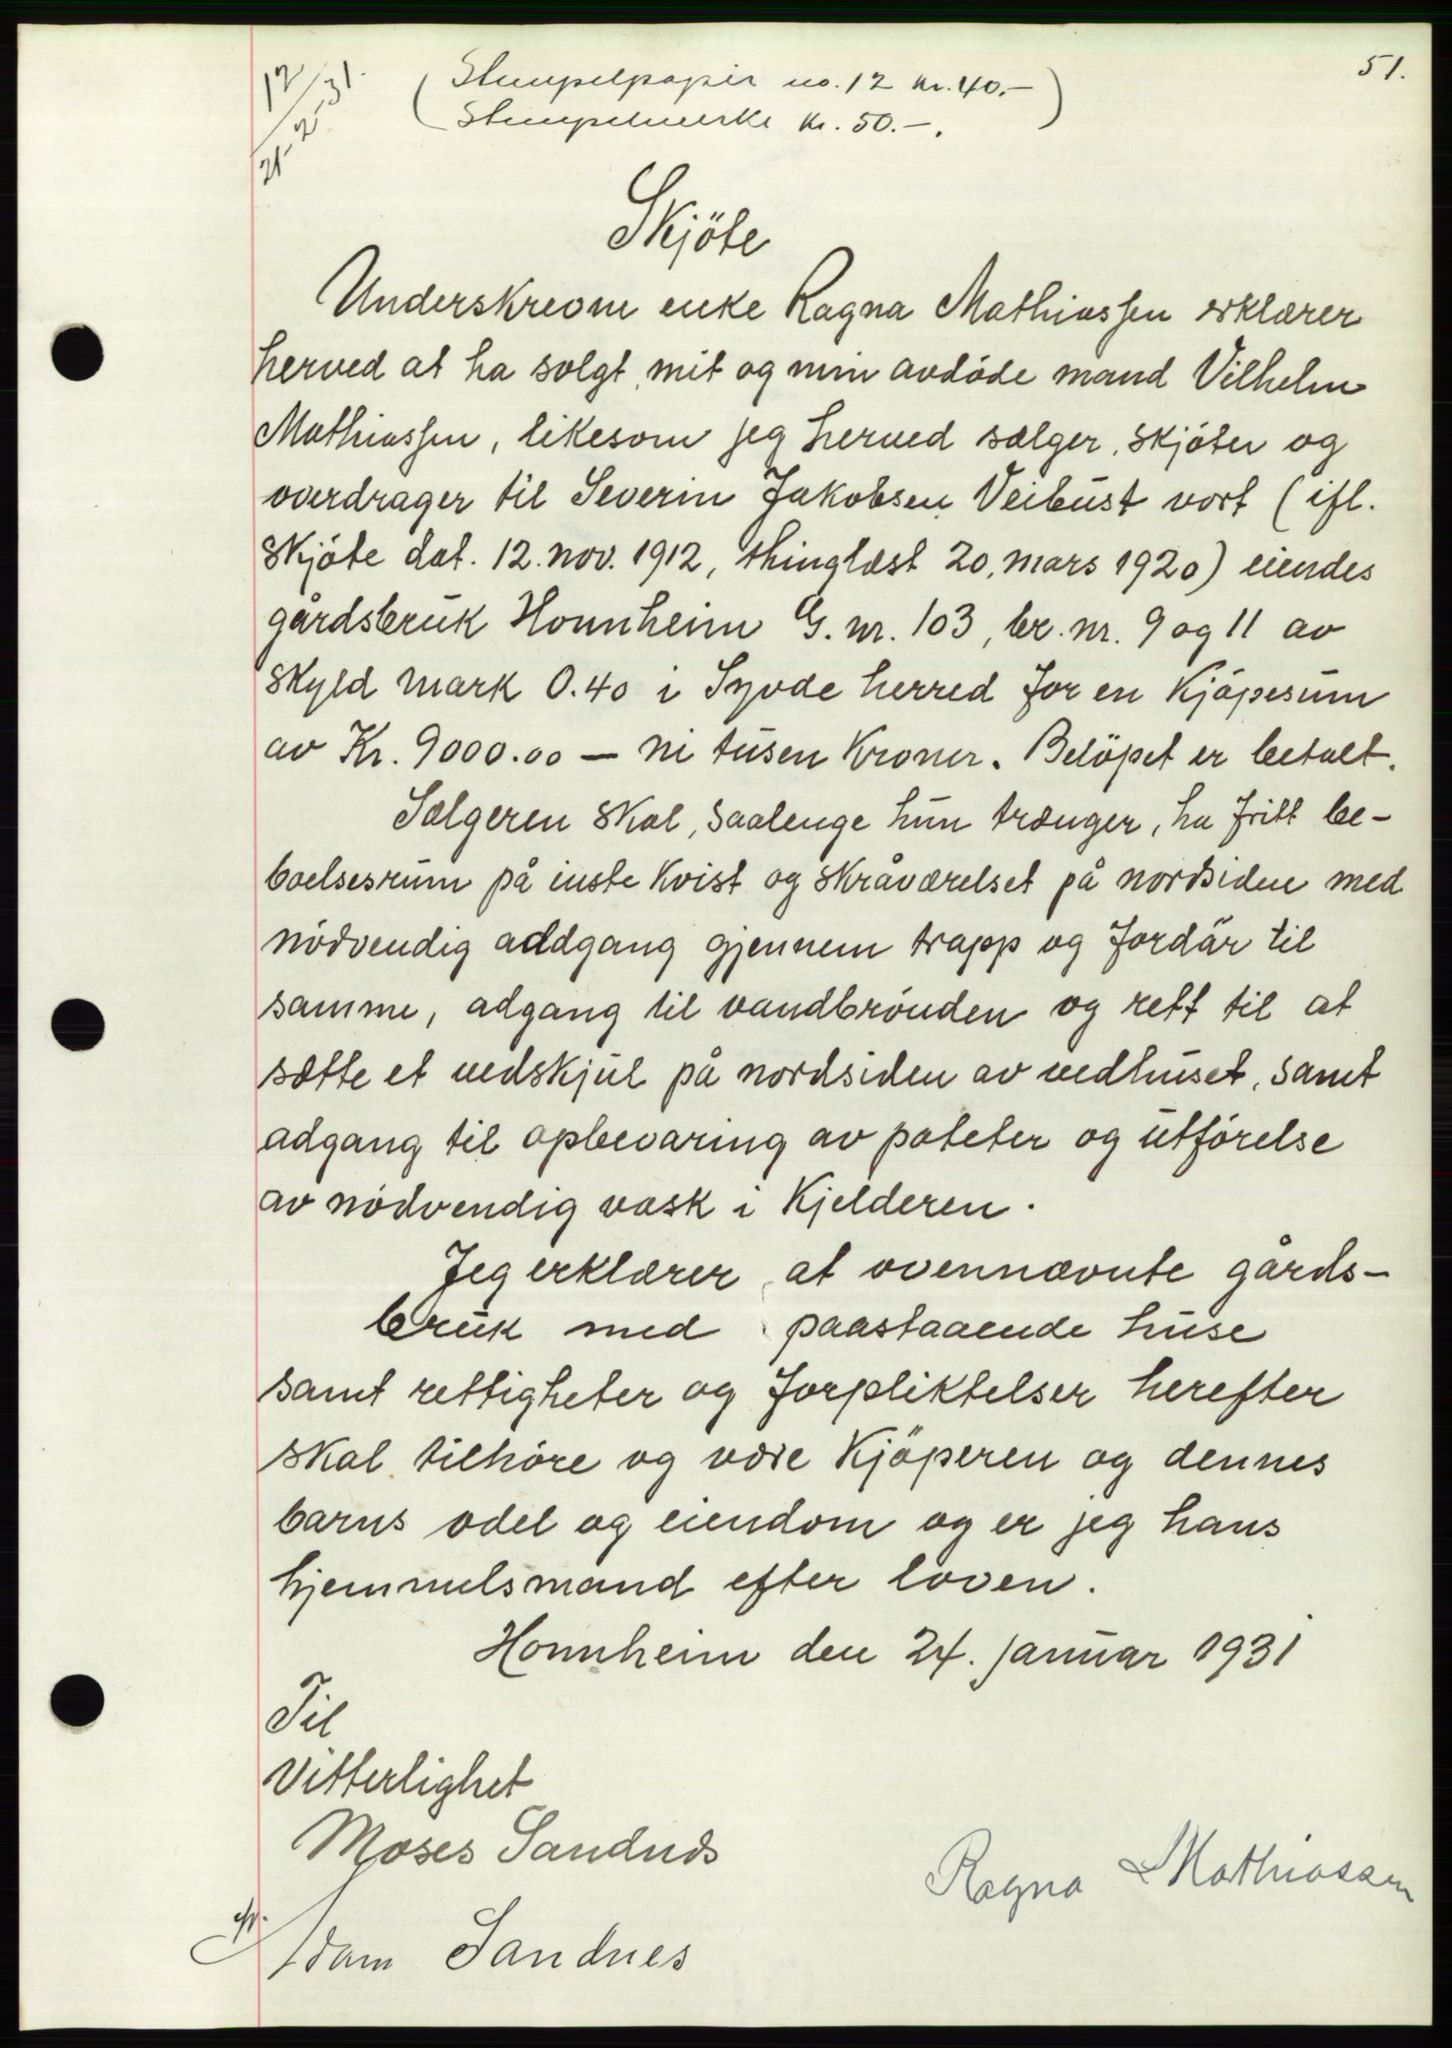 51.
12/21-2-31.
(Stempelpapir no. 12 kr. 40.-)
(Stempelmerke kr. 50.-.
Skjöte
Underskrevne enke Ragna Mathiassen erklærer
herved at ha solgt mit og min avdöde mand Vilhelm
Mathiassen, likesom jeg herved sælger, skjöter og
overdrager til Severin Jakobsen Veibust vort (ifl.
Skjöte dat. 12. nov. 1912, thinglæst 20. mars 1920) eiendes
gårdsbruk Honnheim G. nr. 103, br. nr. 9 og 11 av
skyld mark 0.40 i Syvde herred for en kjöpesum
av Kr. 9000.00 — ni tusen kroner. Belöpet er betalt.
Sælgeren skal, saalenge hun trænger, ha fritt be-
boelsesrum på inste kvist og skråværelset på nordsiden med
nödvendig addgang gjennem trapp og fordör til
samme, adgang til vandbrönden og rett til at
sætte et vedskjul på nordsiden av vedhuset, samt
adgang til opbevaring av poteter og utförelse
av nödvendig vask i kjelderen.
Jeg erklærer, at ovennævnte gårds-
bruk med paastaaende huse
samt rettigheter og forpliktelser herefter
skal tilhöre og være kjöperen og dennes
barns odel og eiendom og er jeg hans
hjemmelsmand efter loven.
Honnheim den 24. januar 1931
Til
Vitterlighet
Moses Sandnes
Ragna Mathiassen
Adam Sandnes